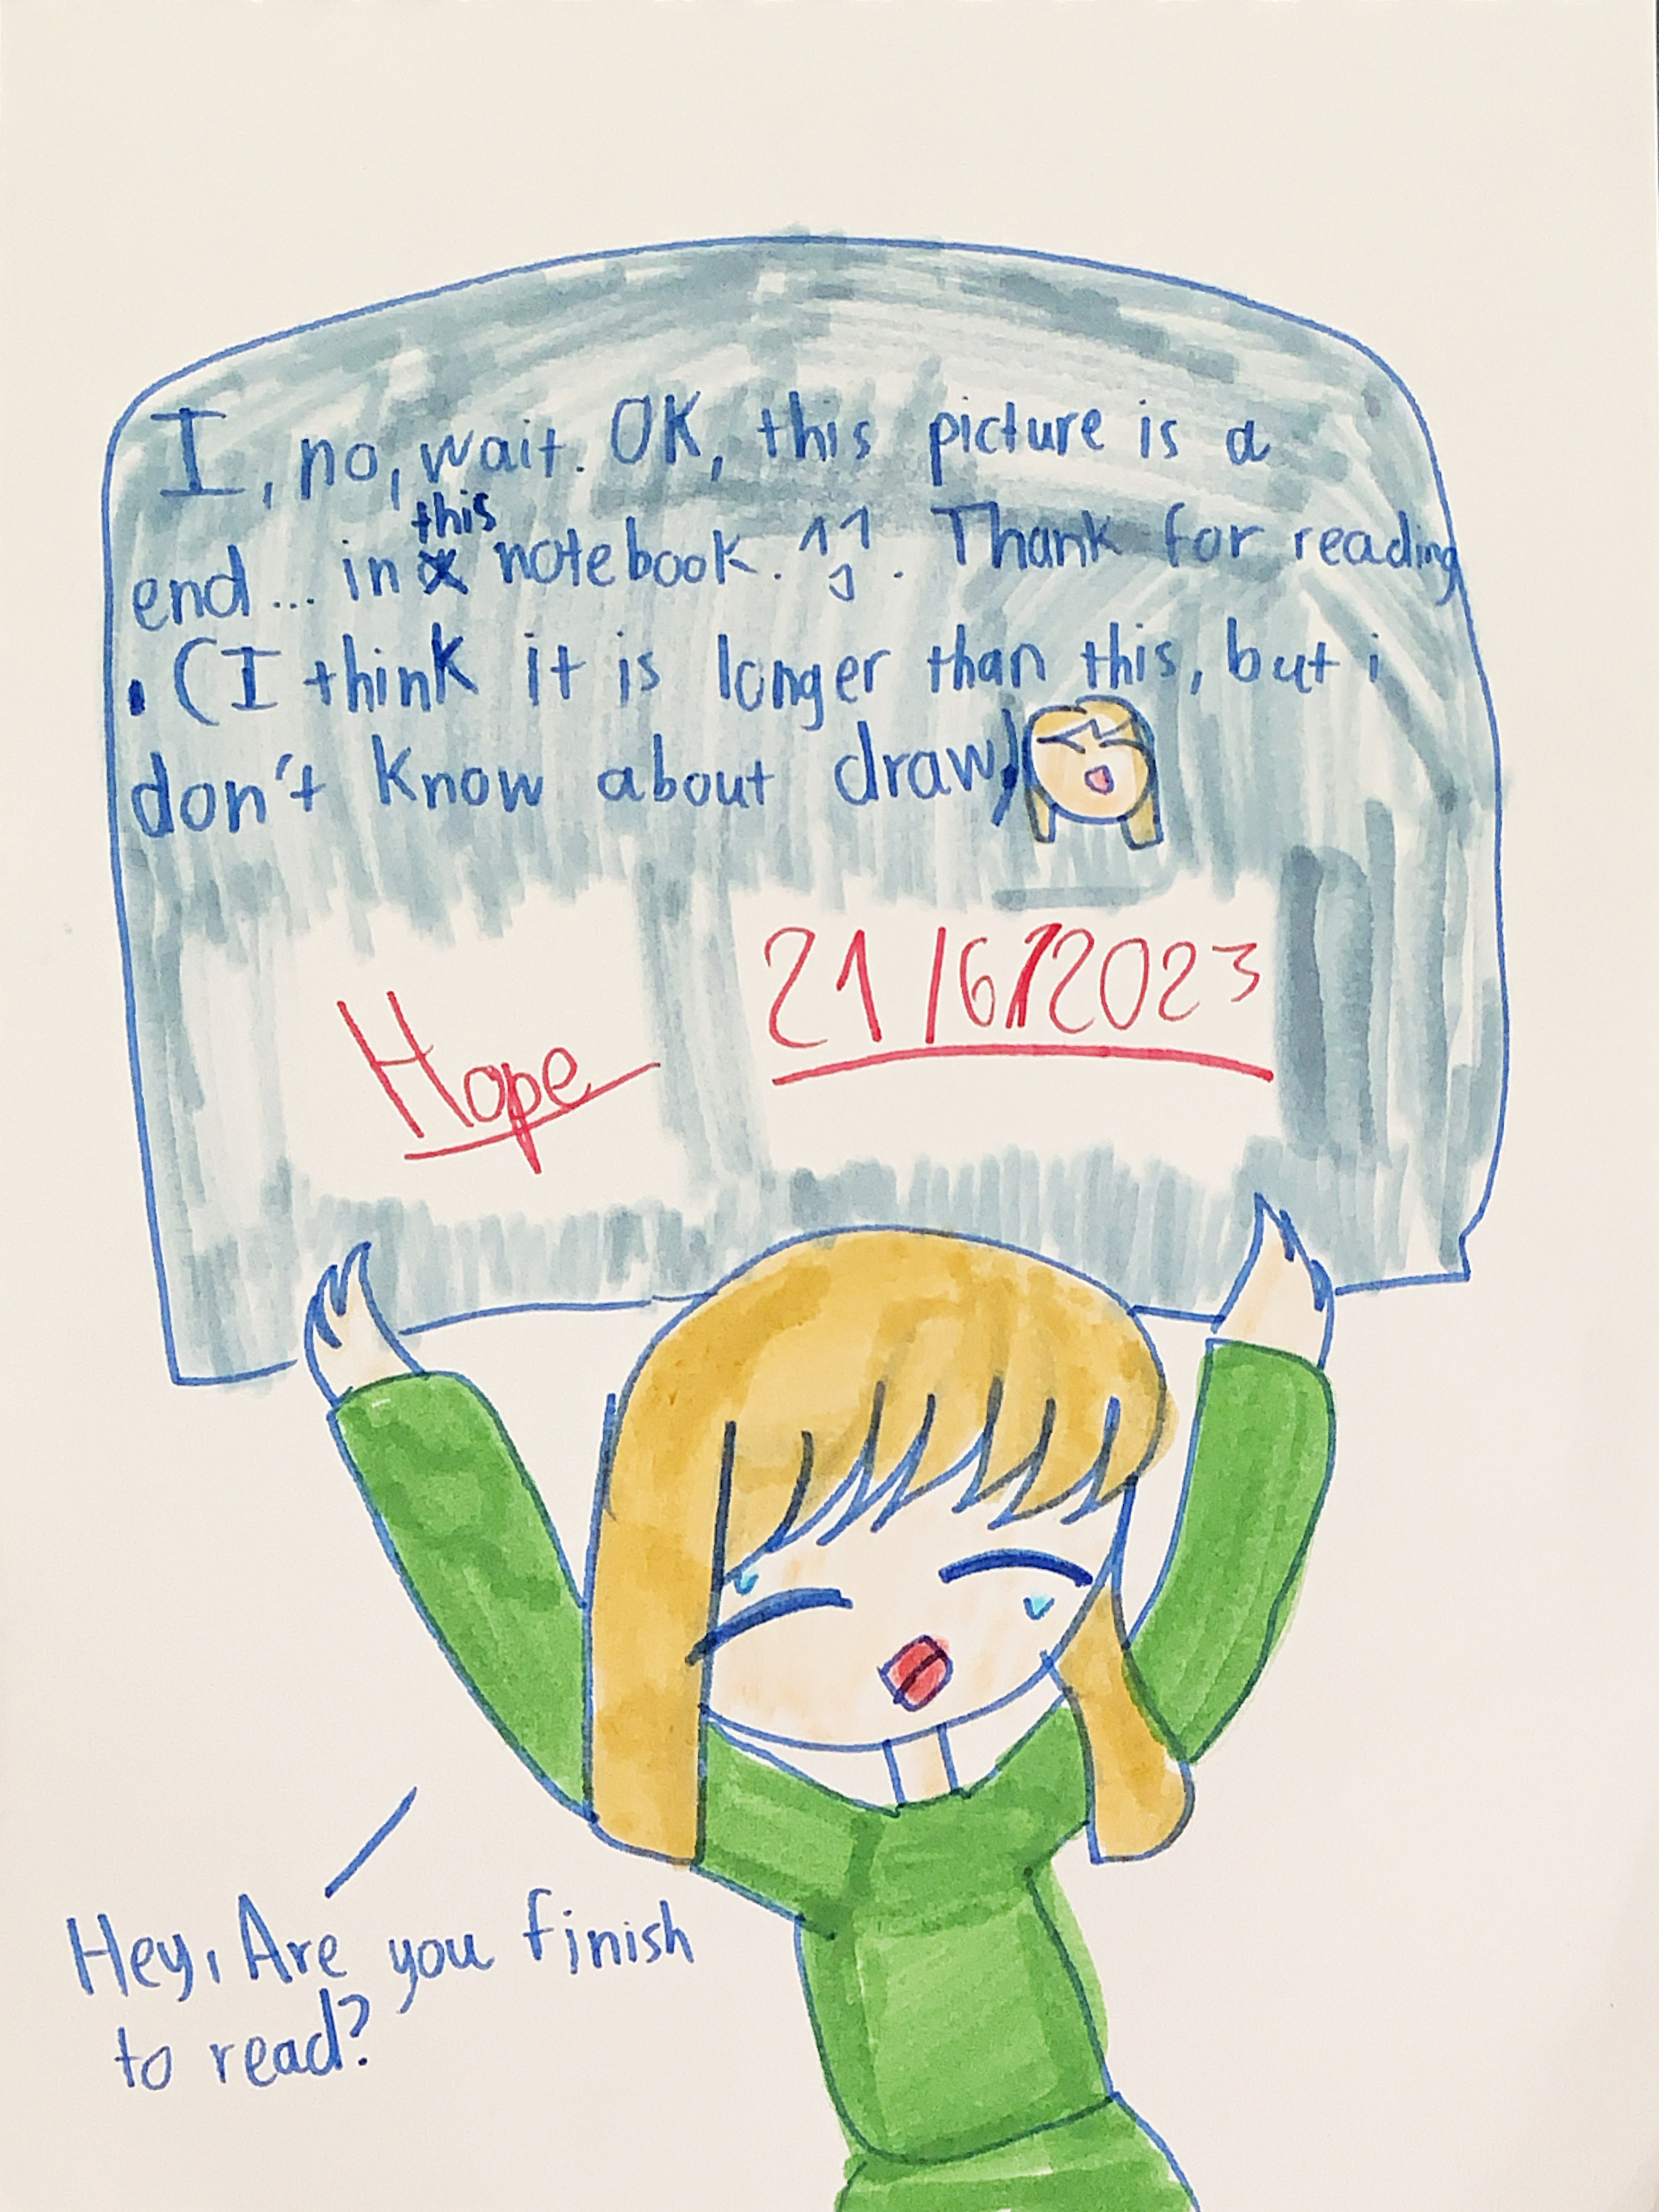 I, no, wait. OK, this picture is a
end... in this notebook. ^J^. Thank for reading
. (I think it is longer than this, but i
don't know about draw)
Hope
21/6/2023
Hey, Are you finish
to read?